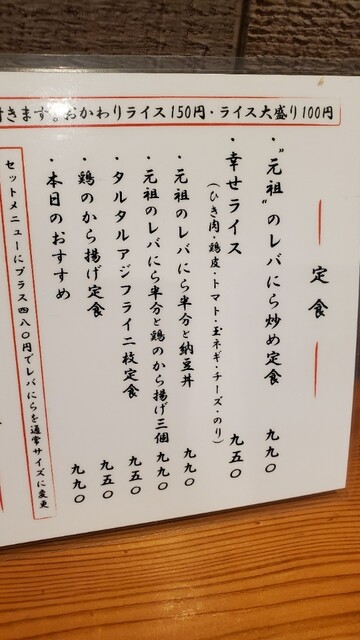 付きます。おかわりライス150円・ライス大盛り100円
定食
・"元祖"のレバにら炒め定食 九九〇
・幸せライス 九五〇
(ひき肉・鶏皮・トマト・玉ネギ・チーズ・のり)
・元祖のレバにら半分と納豆丼 九九〇
・元祖のレバにら半分と鶏のから揚げ三個 九九〇
・タルタルアジフライ二枚定食 九五〇
・鶏のから揚げ定食 九五〇
・本日のおすすめ 九九〇
セットメニューにプラス四八〇円でレバにらを通常サイズに変更